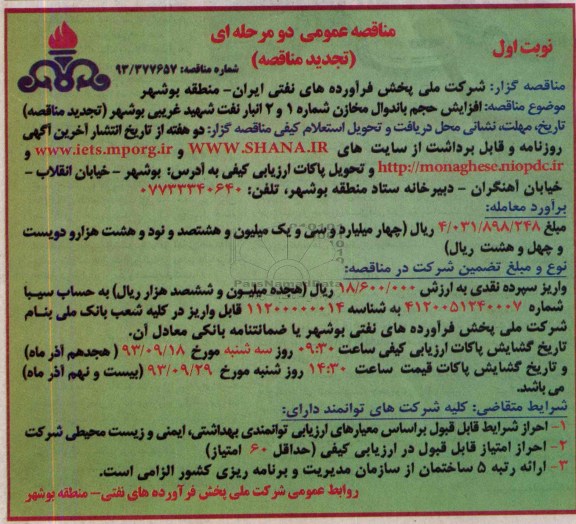 مناقصه عمومی دو مرحله ای
نوبت اول
(تجدید مناقصه)
شماره مناقصه: ۹۳/۳۷۷۶۵۷
مناقصه گزار: شرکت ملی پخش فرآورده های نفتی ایران- منطقه بوشهر
موضوع مناقصه: افزایش حجم باندوال مخازن شماره ۱ و ۲ انبار نفت شهید غریبی بوشهر (تجدید مناقصه)
تاریخ، مهلت، نشانی محل دریافت و تحویل استعلام کیفی مناقصه گزار: دو هفته از تاریخ انتشار آخرین آگهی
روزنامه و قابل برداشت از سایت های WWW.SHANA.IR و www.iets.mporg.ir و
http://monaghese.niopdc.ir و تحویل پاکات ارزیابی کیفی به آدرس: بوشهر - خیابان انقلاب -
خیابان آهنگران - دبیرخانه ستاد منطقه بوشهر، تلفن: ۰۷۷۳۳۳۴۰۶۴۰
برآورد معامله:
مبلغ ۴/۰۳۱/۸۹۸/۲۴۸ ریال (چهار میلیارد و سی و یک میلیون و هشتصد و نود و هشت هزارو دویست
و چهل و هشت ریال)
نوع و مبلغ تضمین شرکت در مناقصه:
واریز سپرده نقدی به ارزش ۱۸/۶۰۰/۰۰۰ ریال (هجده میلیون و ششصد هزار ریال) به حساب سیبا
شماره ۴۱۲۰۰۵۱۲۴۰۰۰۷ به شناسه ۱۱۲۰۰۰۰۰۰۱۴ قابل واریز در کلیه شعب بانک ملی بنام
شرکت ملی پخش فرآورده های نفتی بوشهر یا ضمانتنامه بانکی معادل آن.
تاریخ گشایش پاکات ارزیابی کیفی ساعت ۰۹:۳۰ روز سه شنبه مورخ ۹۳/۰۹/۱۸ ( هجدهم آذر ماه)
و تاریخ گشایش پاکات قیمت ساعت ۱۴:۳۰ روز شنبه مورخ ۹۳/۰۹/۲۹ (بیست و نهم آذر ماه)
می باشد.
شرایط متقاضی: کلیه شرکت های توانمند دارای:
۱- احراز شرایط قابل قبول براساس معیارهای ارزیابی توانمندی بهداشتی، ایمنی و زیست محیطی شرکت
۲- احراز امتیاز قابل قبول در ارزیابی کیفی (حداقل ۶۰ امتیاز)
۳- ارائه رتبه ۵ ساختمان از سازمان مدیریت و برنامه ریزی کشور الزامی است.
روابط عمومی شرکت ملی پخش فرآورده های نفتی- منطقه بوشهر